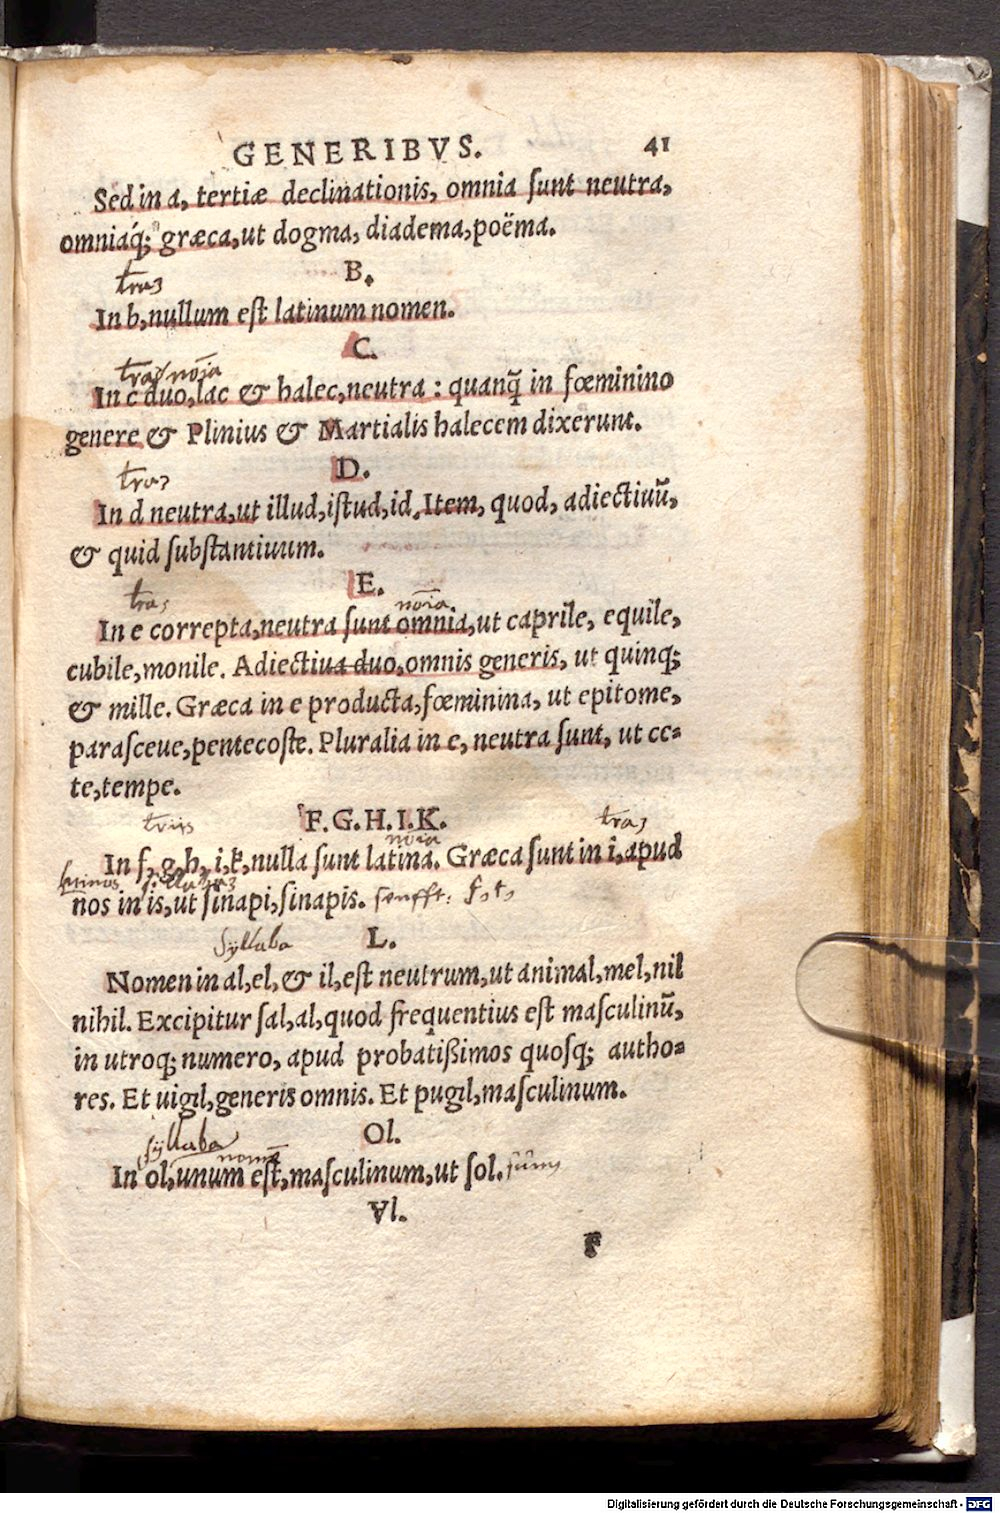 GENERIBVS. 41
Sed in a, tertiæ declinationis, omnia ſunt neutra,
omniaq́; græca, ut dogma, diadema, poëma.
B.
In b, nullum eſt latinum nomen.
C.
In c duo, lac & halec, neutra: quanq̃ in fœminino
genere & Plinius & Martialis halecem dixerunt.
D.
In d neutra, ut illud, iſtud, id. Item, quod, adiectiuũ,
& quid ſubſtantiuum.
E.
nõia.
In e correpta, neutra ſunt omnia, ut caprile, equile,
cubile, monile. Adiectiua duo, omnis generis, ut quinq;
& mille. Græca in e producta, fœminina, ut epitome,
paraſceue, pentecoſte. Pluralia in e, neutra ſunt, ut ce-
te, tempe.
F. G. H. I. K.
nõia
In f, g, h, i, k, nulla ſunt latina. Græca ſunt in i, apud
nos in is, ut ſinapi, ſinapis. ſenfft:
L.
Syllaba
Nomen in al, el, & il, eſt neutrum, ut animal, mel, nil
nihil. Excipitur ſal, al, quod frequentius eſt maſculinũ,
in utroq; numero, apud probatißimos quoſq; autho-
res. Et uigil, generis omnis. Et pugil, maſculinum.
Ol.
ſyllaba
In ol, unum eſt, maſculinum, ut ſol.
Vl.
F
Digitalisierung gefördert durch die Deutsche Forschungsgemeinschaft - DFG